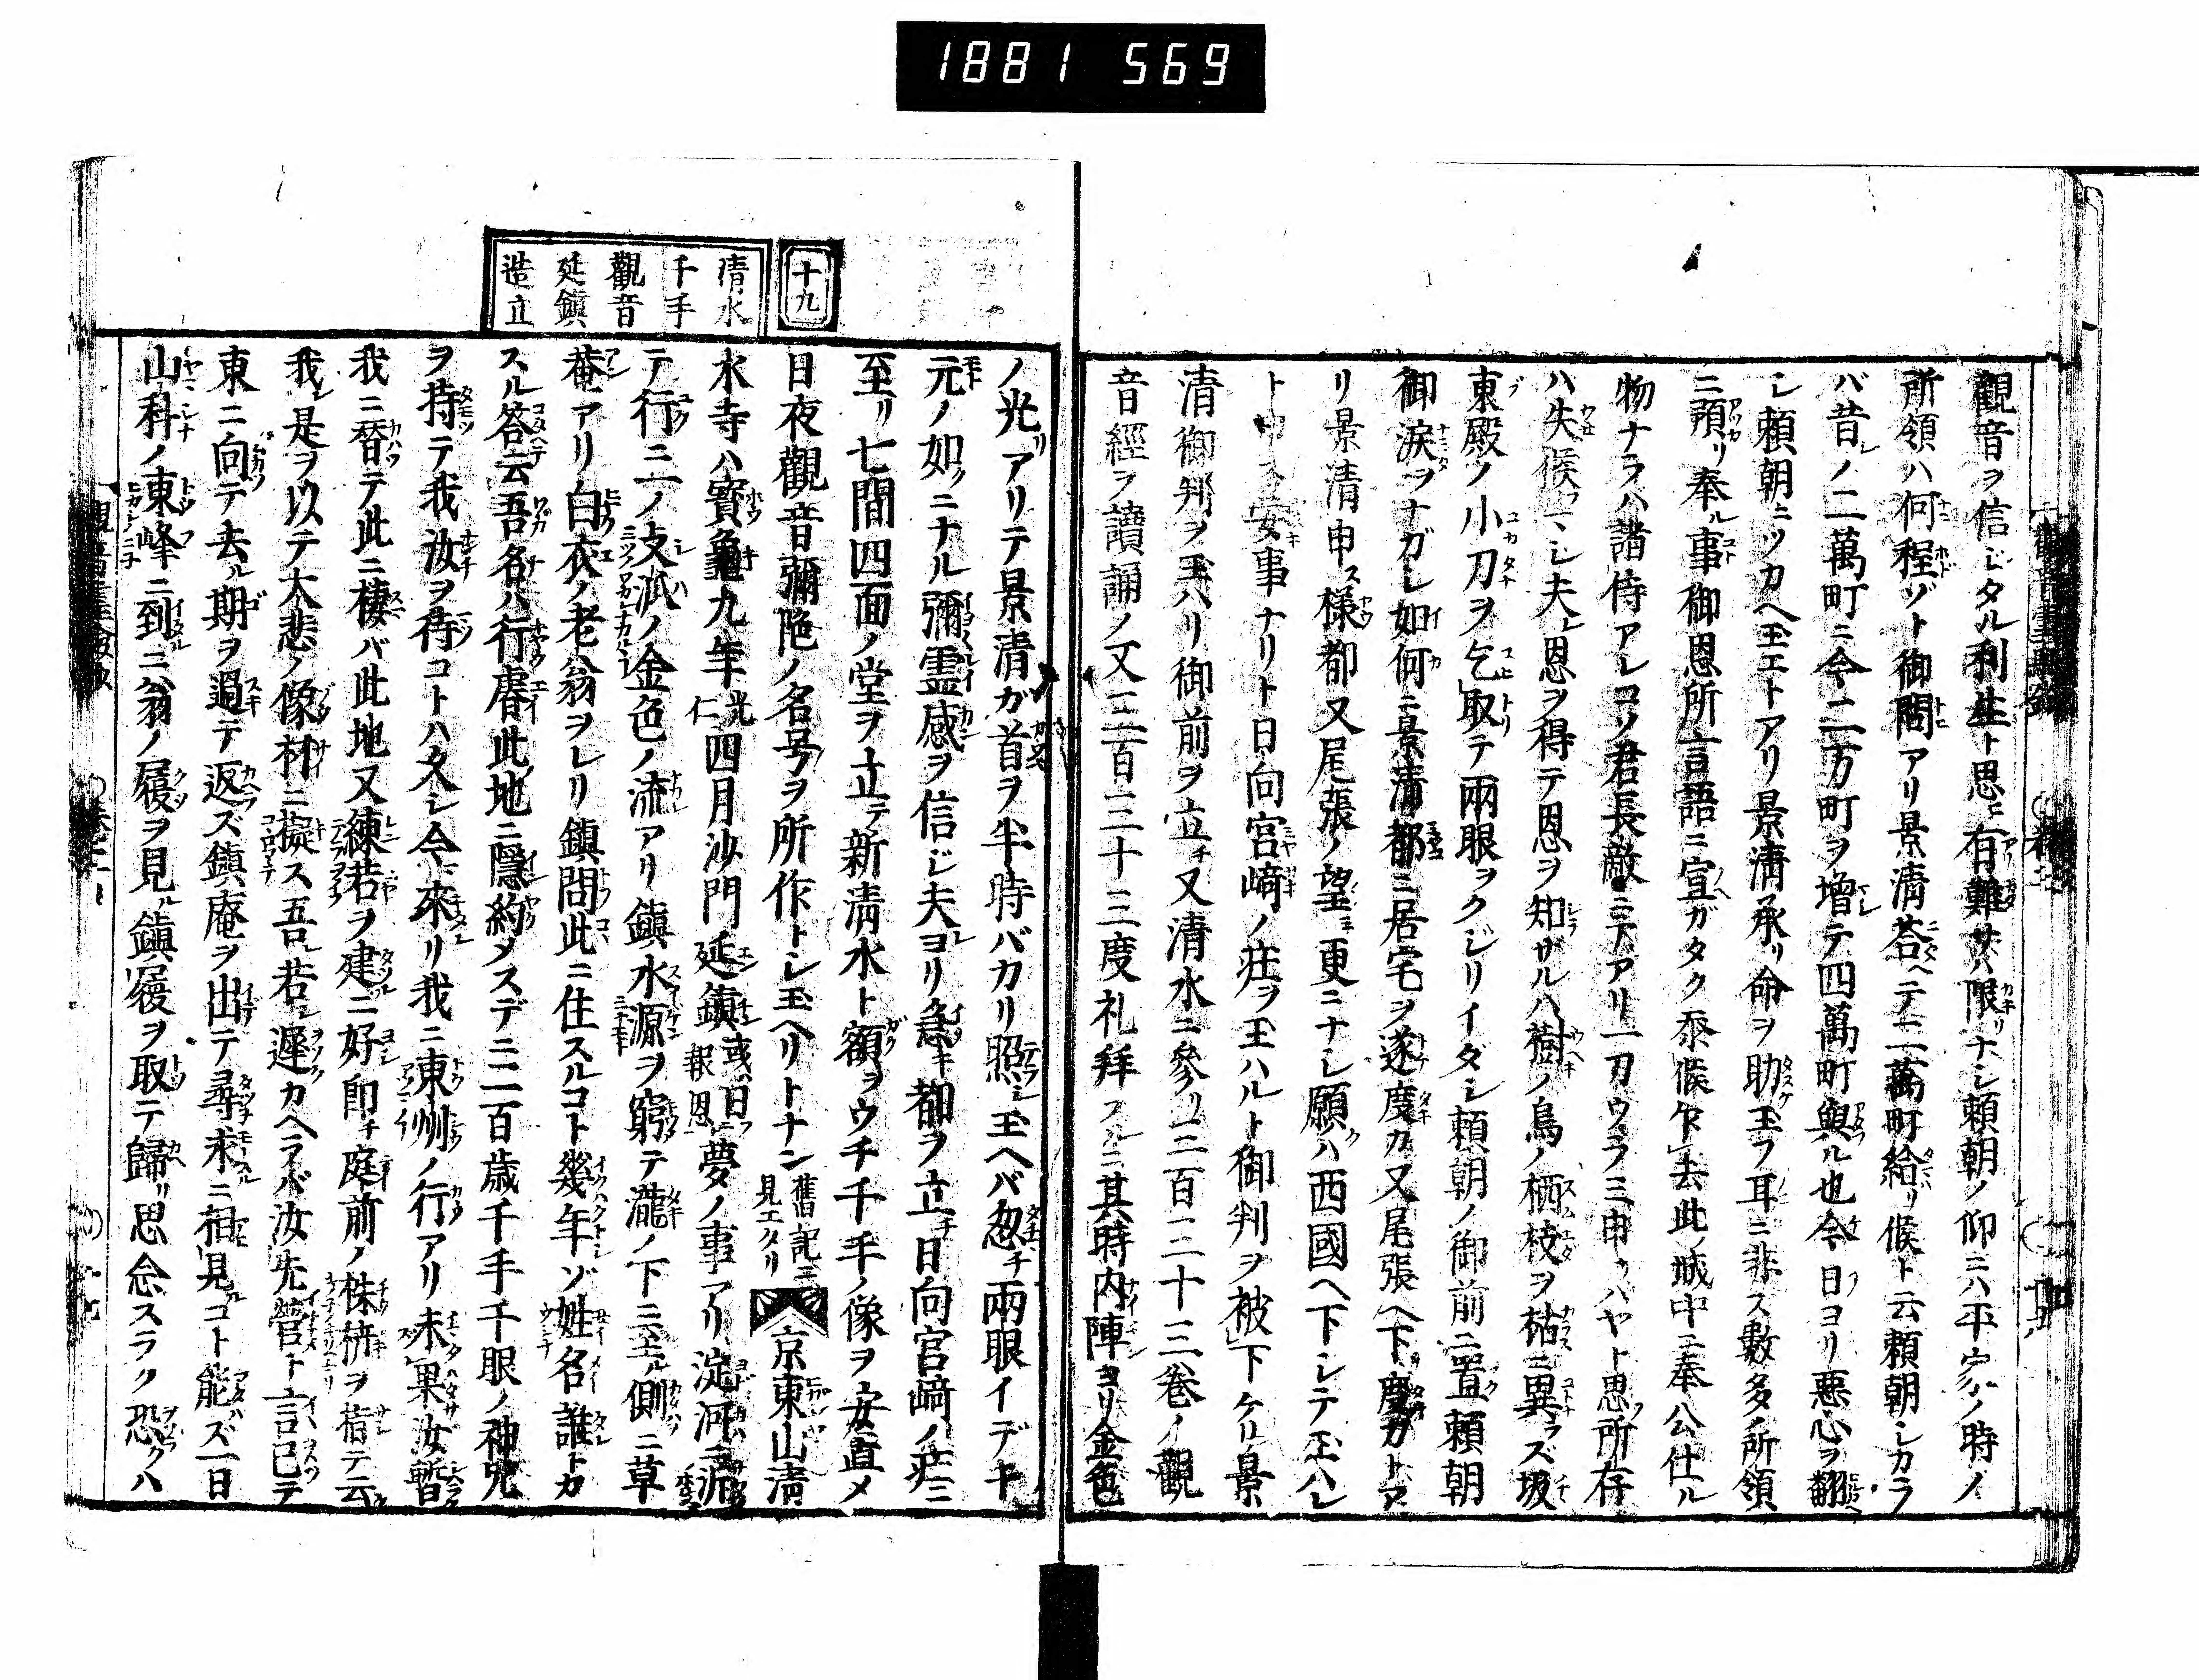 1881 569
觀音ヲ信ジタル利生ト思エ有難サハ限リナシ頼朝ノ仰ニハ平家ノ時ノ
所領ハ何程ゾト御問アリ景清答ヘテ二萬町給リ候ト云頼朝シカラ
バ昔ノ二萬町ニ今二万町ヲ増テ四萬町與ル也今日ヨリ悪心ヲ翻
シ頼朝ニツカヘ玉エトアリ景清承リ命ヲ助玉フ耳ニ非ス數多ノ所領
ニ預リ奉ル事御恩所言語ニ宣ガタク忝候乍去此城中ニ奉公仕ル
物ナラハ諸侍アレコソ君長敵ニテアリ一刀ウラミ申ウハヤト思所存
ハ失候フマシ夫恩ヲ得テ恩ヲ知ザルハ樹ノ鳥ノ栖枝ヲ枯ニ異ラズ坂
東殿ノ小刀ヲ乞取テ兩眼ヲクジリイダシ頼朝ノ御前ニ置頼朝
御涙ヲナガシ如何ニ景清都ニ居宅ヲ遂度カ又尾張ヘ下度カトア
リ景清申ス様都又尾張ノ望ミ更ニナシ願クハ西國ヘ下シテ玉ハレ
ト申ス安事ナリト日向宮﨑ノ荘ヲ玉ハルト御判ヲ被下ケリ景
清御判ヲ玉ハリ御前ヲ立チ又清水ニ參リ三百三十三巻ノ觀
音經ヲ讀誦ノ又三百三十三度礼拜スルニ其時内陣ヨリ金色
ノ光リアリテ景清ガ首ヲ半時バカリ照シ玉ヘバ忽チ兩眼イデキ
元ノ如クニナル彌霊感ヲ信ジ夫ヨリ急キ都ヲ立チ日向宮﨑ノ荘ニ
至リ七間四面ノ堂ヲ立テ新清水ト額ヲウチ千手ノ像ヲ安置メ
日夜觀音彌陀ノ名号ヲ所作トシ玉ヘリトナン舊記ニ見エタリ
十九
清水
千手
觀音
延鎮
造立
京東山清
水寺ハ寳龜九年光仁四月沙門延鎮或ハ曰報恩夢ノ事アリ淀河ニ派
テ行ニ一ノ支派ノ金色ノ流アリ鎮水源ヲ窮テ瀧ノ下ニ至ル側ニ草
菴アリ白衣ノ老翁ヲレリ鎮問此ニ住スルコト幾年ゾ姓名誰トカ
スル答云吾名ハ行睿此地ニ隱約メスデニ二百歳千手千眼ノ神咒
ヲ持テ我汝ヲ待コトハ久シ今來リ我ニ東州ノ行アリ未果汝暫
我ニ替テ此ニ棲バ此地又練若ヲ建ニ好即チ庭前ノ株枿ヲ指テ云
我是ヲ以テ大悲ノ像材ニ擬ス吾若遲クカヘラバ汝先營ト言已テ
東ニ向テ去ル期ヲ過テ返ズ鎮庵ヲ出テ尋求ニ相見コト能ズ一日
山科ノ東峰ニ到ニ翁ノ履ヲ見ル鎮履ヲ取テ歸リ思念スラク恐クハ